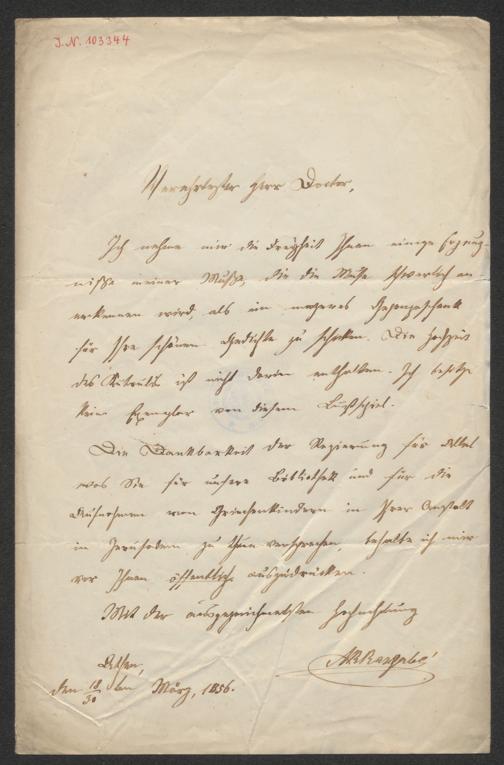 J.N. 103344
Verehrtester Herr Doctor,
Ich nehme mir die Freyheit Ihnen einige Erzeug-
nisse meiner Muße, die die Muse schwerlich an-
erkennen wird, als ein mageres Gegengeschenk
für Ihre schönen Gedichte zu schicken. Die Hochzeit
des Kutrulis ist nicht darin enthalten. Ich besitze
kein Exemplar von diesem Lustspiel.
Die Dankbarkeit der Regierung für Alles
was Sie für unsere Bibliothek und für die
Aufnahme von Griechenkindern in Ihrer Anstalt
in Jerusalem zu thun versprechen, behalte ich mir
vor Ihnen öffentlich auszudrücken.
Mit der ausgezeichnetsten Hochachtung
ARRangabé
Athen,
den 18/30ten März, 1856.